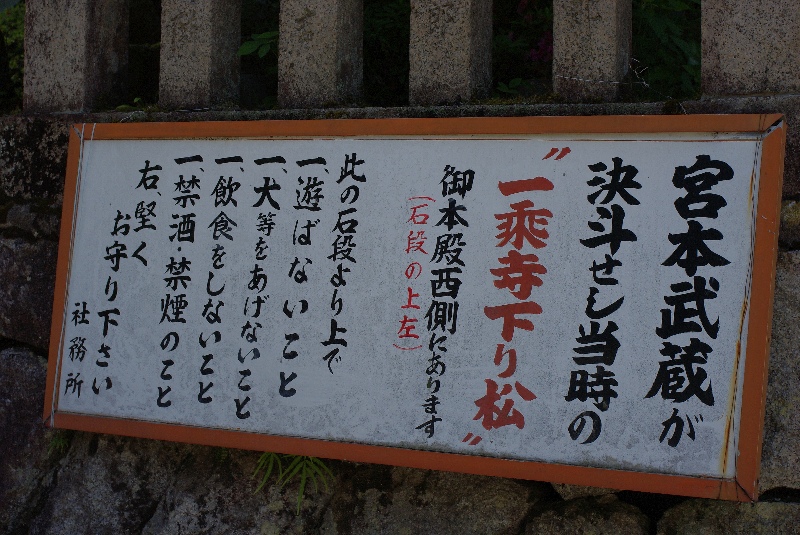 宮本武蔵が
決斗せし当時の
"一乗寺下り松"
御本殿西側にあります
(石段の上左)
此の石段より上で
一、遊ばないこと
一、犬等をあげないこと
一、飲食をしないこと
一、禁酒禁煙のこと
右、堅く
お守り下さい
社務所